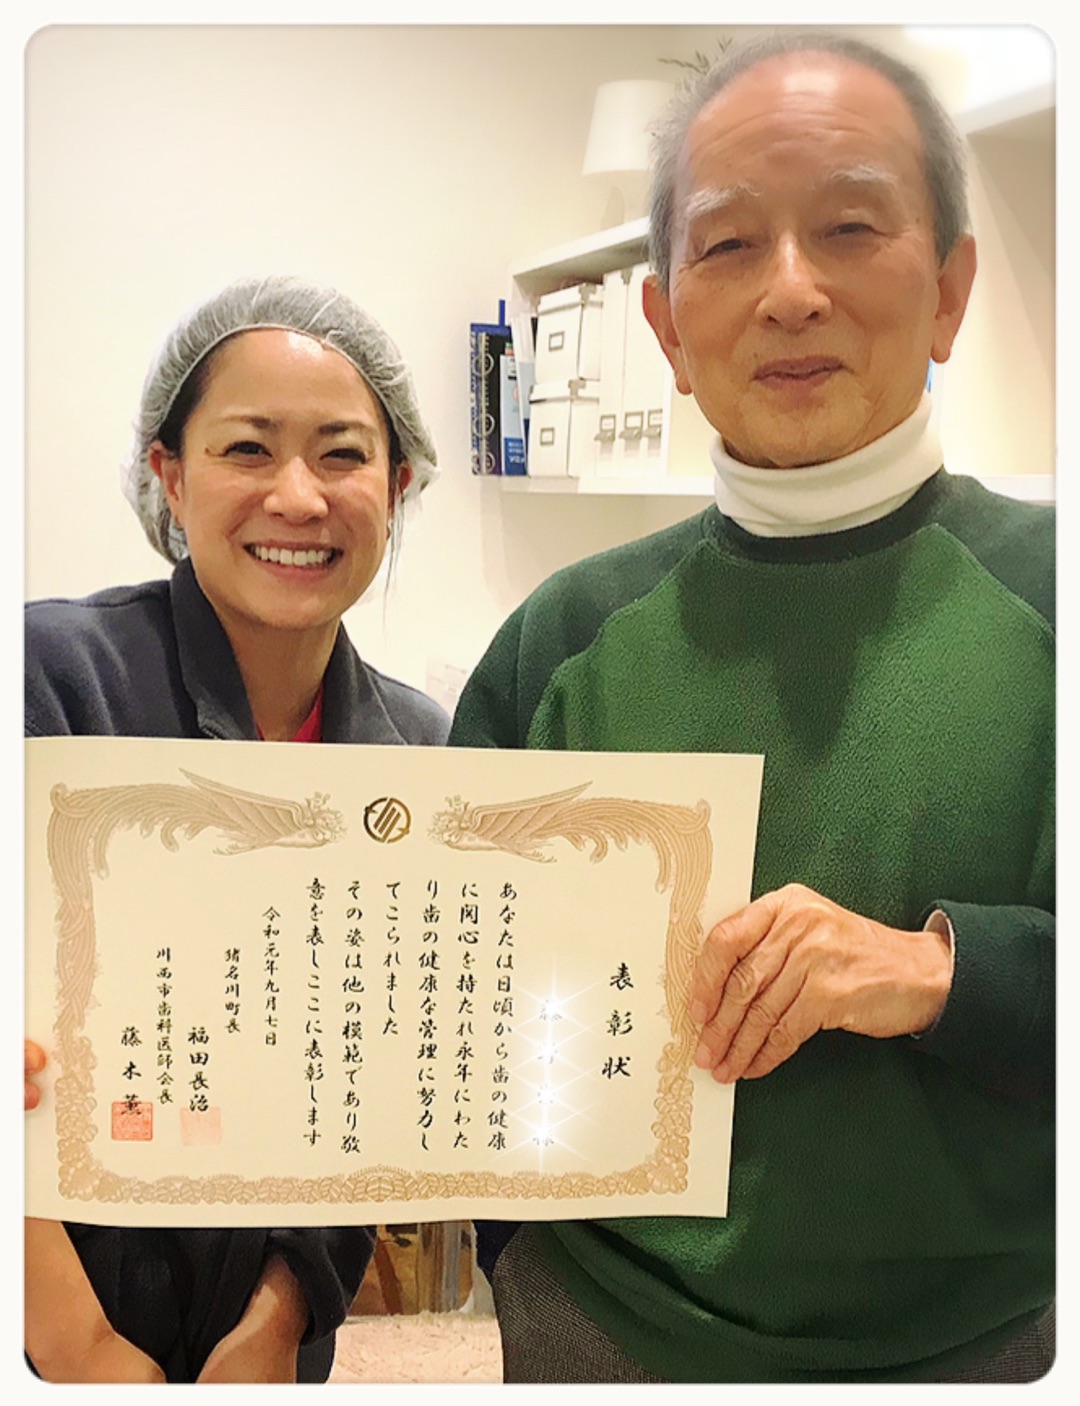 表彰状
様
あなたは日頃から歯の健康
に関心を持たれ永年にわた
り歯の健康な管理に努力し
てこられました
その姿は他の模範であり敬
意を表しここに表彰します
令和元年九月七日
猪名川町長
福田長治
川西市歯科医師会長
藤木薫